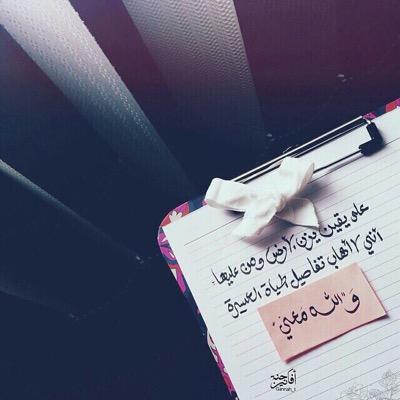 على يقين يزن الأرض ومن عليها
أنني لا أهاب تفاصيل الحياة العسيرة
وَ "الله مَعي"
أفانين جنة
Ginnah_t